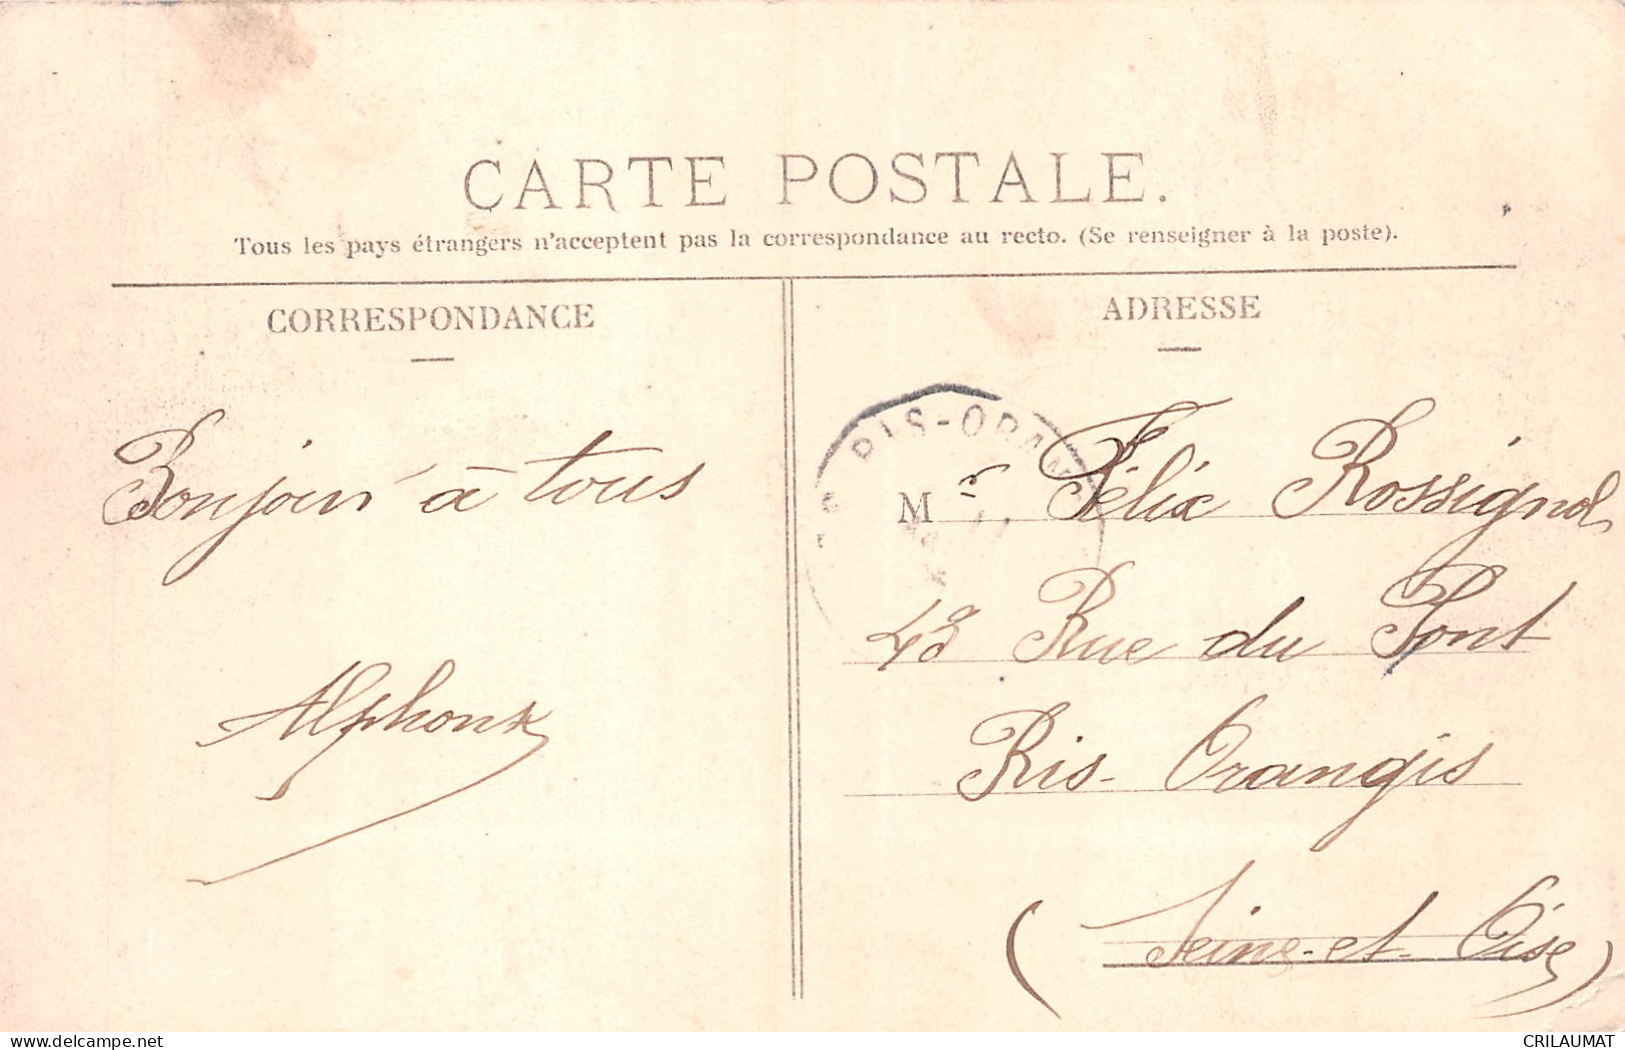 CARTE POSTALE.
Tous les pays étrangers n'acceptent pas la correspondance au recto. (Se renseigner à la poste).
CORRESPONDANCE
ADRESSE
Bonjour à tous
Alphonse
RIS-ORAN
Mr Félix Rossignol
43 Rue du Pont
Ris-Orangis
(Seine-et-Oise)
delcampe.net
CRILAUMAT